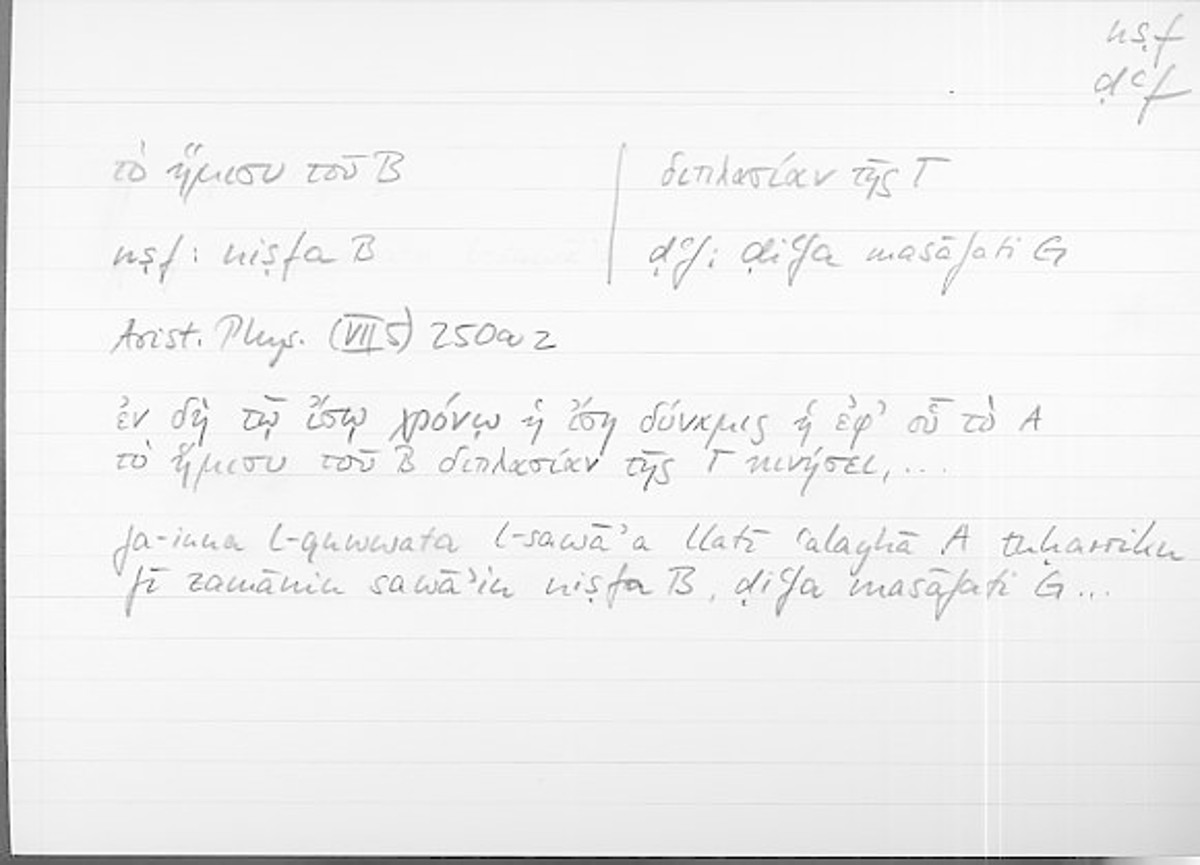 nṣf
ḍʿf
τὸ ἥμισυ τοῦ Β | διπλασίαν τῆς Γ
nṣf: niṣfa B | ḍʿf: ḍiʿfa masāfati G
Arist. Phys. (VII 5) 250a2
ἐν δὴ τῷ ἴσῳ χρόνῳ ἡ ἴση δύναμις ἡ ἐφ’ οὗ τὸ Α
τὸ ἥμισυ τοῦ Β διπλασίαν τῆς Γ κινήσει, ...
fa-inna l-quwwata l-sawāʾa llatī ʿalayhā A tuḥarriku
fī zamānin sawāʾin niṣfa B, ḍiʿfa masāfati G...